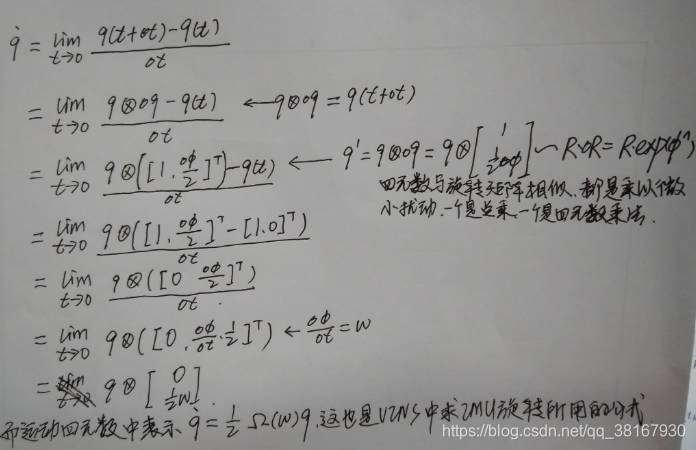 q̇ = lim t→0 (q(t+Δt)-q(t))/Δt
= lim t→0 (q⊗Δq - q(t))/Δt ← q⊗Δq = q(t+Δt)
= lim t→0 (q⊗([1, Δϕ/2]ᵀ)-q(t))/Δt ← q' = q⊗Δq = q⊗[1 ½Δϕ] ~ R·ΔR = R exp(ϕ^)
四元数与旋转矩阵相似,都是乘以个微
小扰动,一个是点乘,一个是四元数乘法.
= lim t→0 (q⊗([1, Δϕ/2]ᵀ - [1.0]ᵀ))/Δt
= lim t→0 (q⊗([0 Δϕ/2]ᵀ))/Δt.
= lim t→0 q⊗([0, Δϕ/Δt·½]ᵀ) ← Δϕ/Δt = w
= q⊗[0 ½w].
而运动四元数中表示 q̇ = ½ Ω(w)q,这也是VINS中求IMU旋转所用的公式
https://blog.csdn.net/qq_38167930